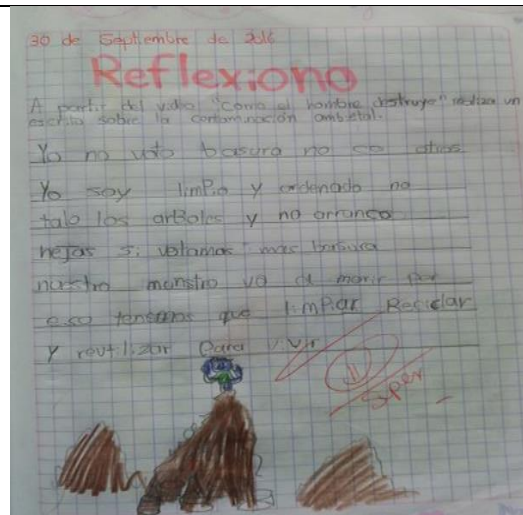 30 de Septiembre de 2016
Reflexiono
A partir del video "como el hombre destruye" realiza un
escrito sobre la contaminación ambietal.
Yo no voto basura no co otros
Yo soy limpio y ordenado no
talo los arboles y no arranco
hejas si votamos mas basura
nuestro monstro va a morir por
eso tenemos que limpiar Reciclar
y reutilizar para vivir
super